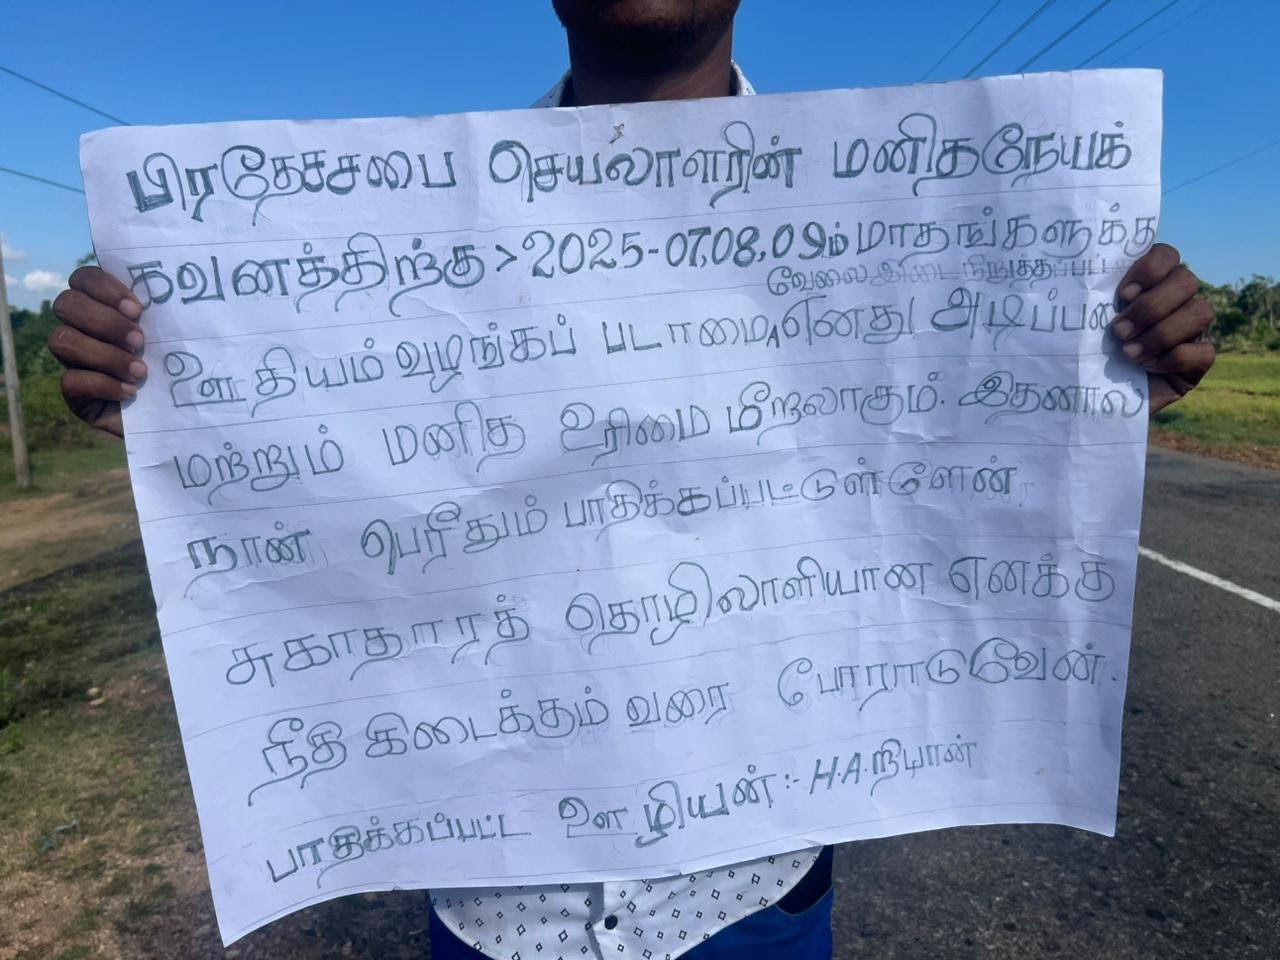 பிரதேசசபை செயலாளரின் மனிதநேயக்
கவனத்திற்கு > 2025-07,08,09ம் மாதங்களுக்கு
வேலை இடை நிறுத்தப்பட்ட
ஊதியம் வழங்கப் படாமை எனது அடிப்படை
மற்றும் மனித உரிமை மீறலாகும். இதனால்
நான் பெரிதும் பாதிக்கப்பட்டுள்ளேன்
சுகாதாரத் தொழிலாளியான எனக்கு
நீதி கிடைக்கும் வரை போராடுவேன்.
பாதிக்கப்பட்ட ஊழியன்:- H.A.நியான்